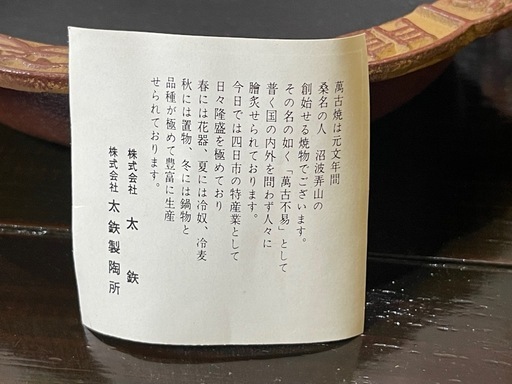 萬古焼は元文年間
桑名の人　沼波弄山の
創始せる焼物でございます。
その名の如く「萬古不易」として
普く国の内外を問わず人々に
膾炙せられております。
今日では四日市の特産業として
日々隆盛を極めており
春には花器、夏には冷奴、冷麦
秋には置物、冬には鍋物と
品種が極めて豊富に生産
せられております。
株式会社　太鉄
株式会社　太鉄製陶所